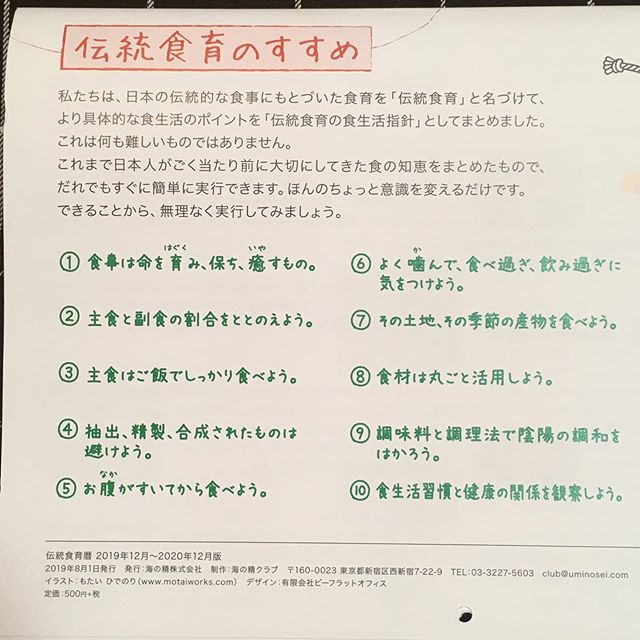 伝統食育のすすめ
私たちは、日本の伝統的な食事にもとづいた食育を「伝統食育」と名づけて、
より具体的な食生活のポイントを「伝統食育の食生活指針」としてまとめました。
これは何も難しいものではありません。
これまで日本人がごく当たり前に大切にしてきた食の知恵をまとめたもので、
だれでもすぐに簡単に実行できます。ほんのちょっと意識を変えるだけです。
できることから、無理なく実行してみましょう。
はぐく いや
① 食事は命を育み、保ち、癒すもの。
② 主食と副食の割合をととのえよう。
③ 主食はご飯でしっかり食べよう。
④ 抽出、精製、合成されたものは
避けよう。
なか
⑤ お腹がすいてから食べよう。
か
⑥ よく噛んで、食べ過ぎ、飲み過ぎに
気をつけよう。
⑦ その土地、その季節の産物を食べよう。
⑧ 食材は丸ごと活用しよう。
⑨ 調味料と調理法で陰陽の調和を
はかろう。
⑩ 食生活習慣と健康の関係を観察しよう。
伝統食育暦 2019年12月〜2020年12月版
2019年8月1日発行 発行：海の精株式会社 制作：海の精クラブ 〒160-0023 東京都新宿区西新宿7-22-9 TEL：03-3227-5603 club@uminosei.com
イラスト：もたい ひでのり（www.motaiworks.com） デザイン：有限会社ビーフラットオフィス
定価：500円+税